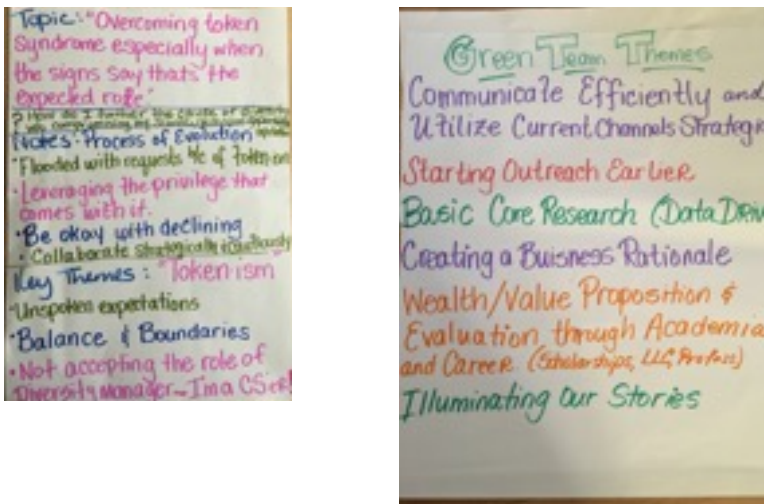 Topic: "Overcoming token
Syndrome especially when
the signs say thats the
expected role"
? How do I further the cause of
Notes: Process of Evolution
Flooded with requests b/c of Token
Leveraging the privilege that
comes with it.
Be okay with declining
Collaborate Strategically
Key Themes: "Tokenism"
Unspoken expectations
Balance & Boundaries
Not accepting the role of
Diversity Manager - I'm a CSer!
Green Team Themes
Communicate Efficiently and
Utilize Current Channels Strategi
Starting Outreach Earlier
Basic Core Research (Data Driv
Creating a Buisness Rationale
Wealth/Value Proposition &
Evaluation through Academia
and Career (Scholarships, LLC, Profess)
Illuminating Our Stories